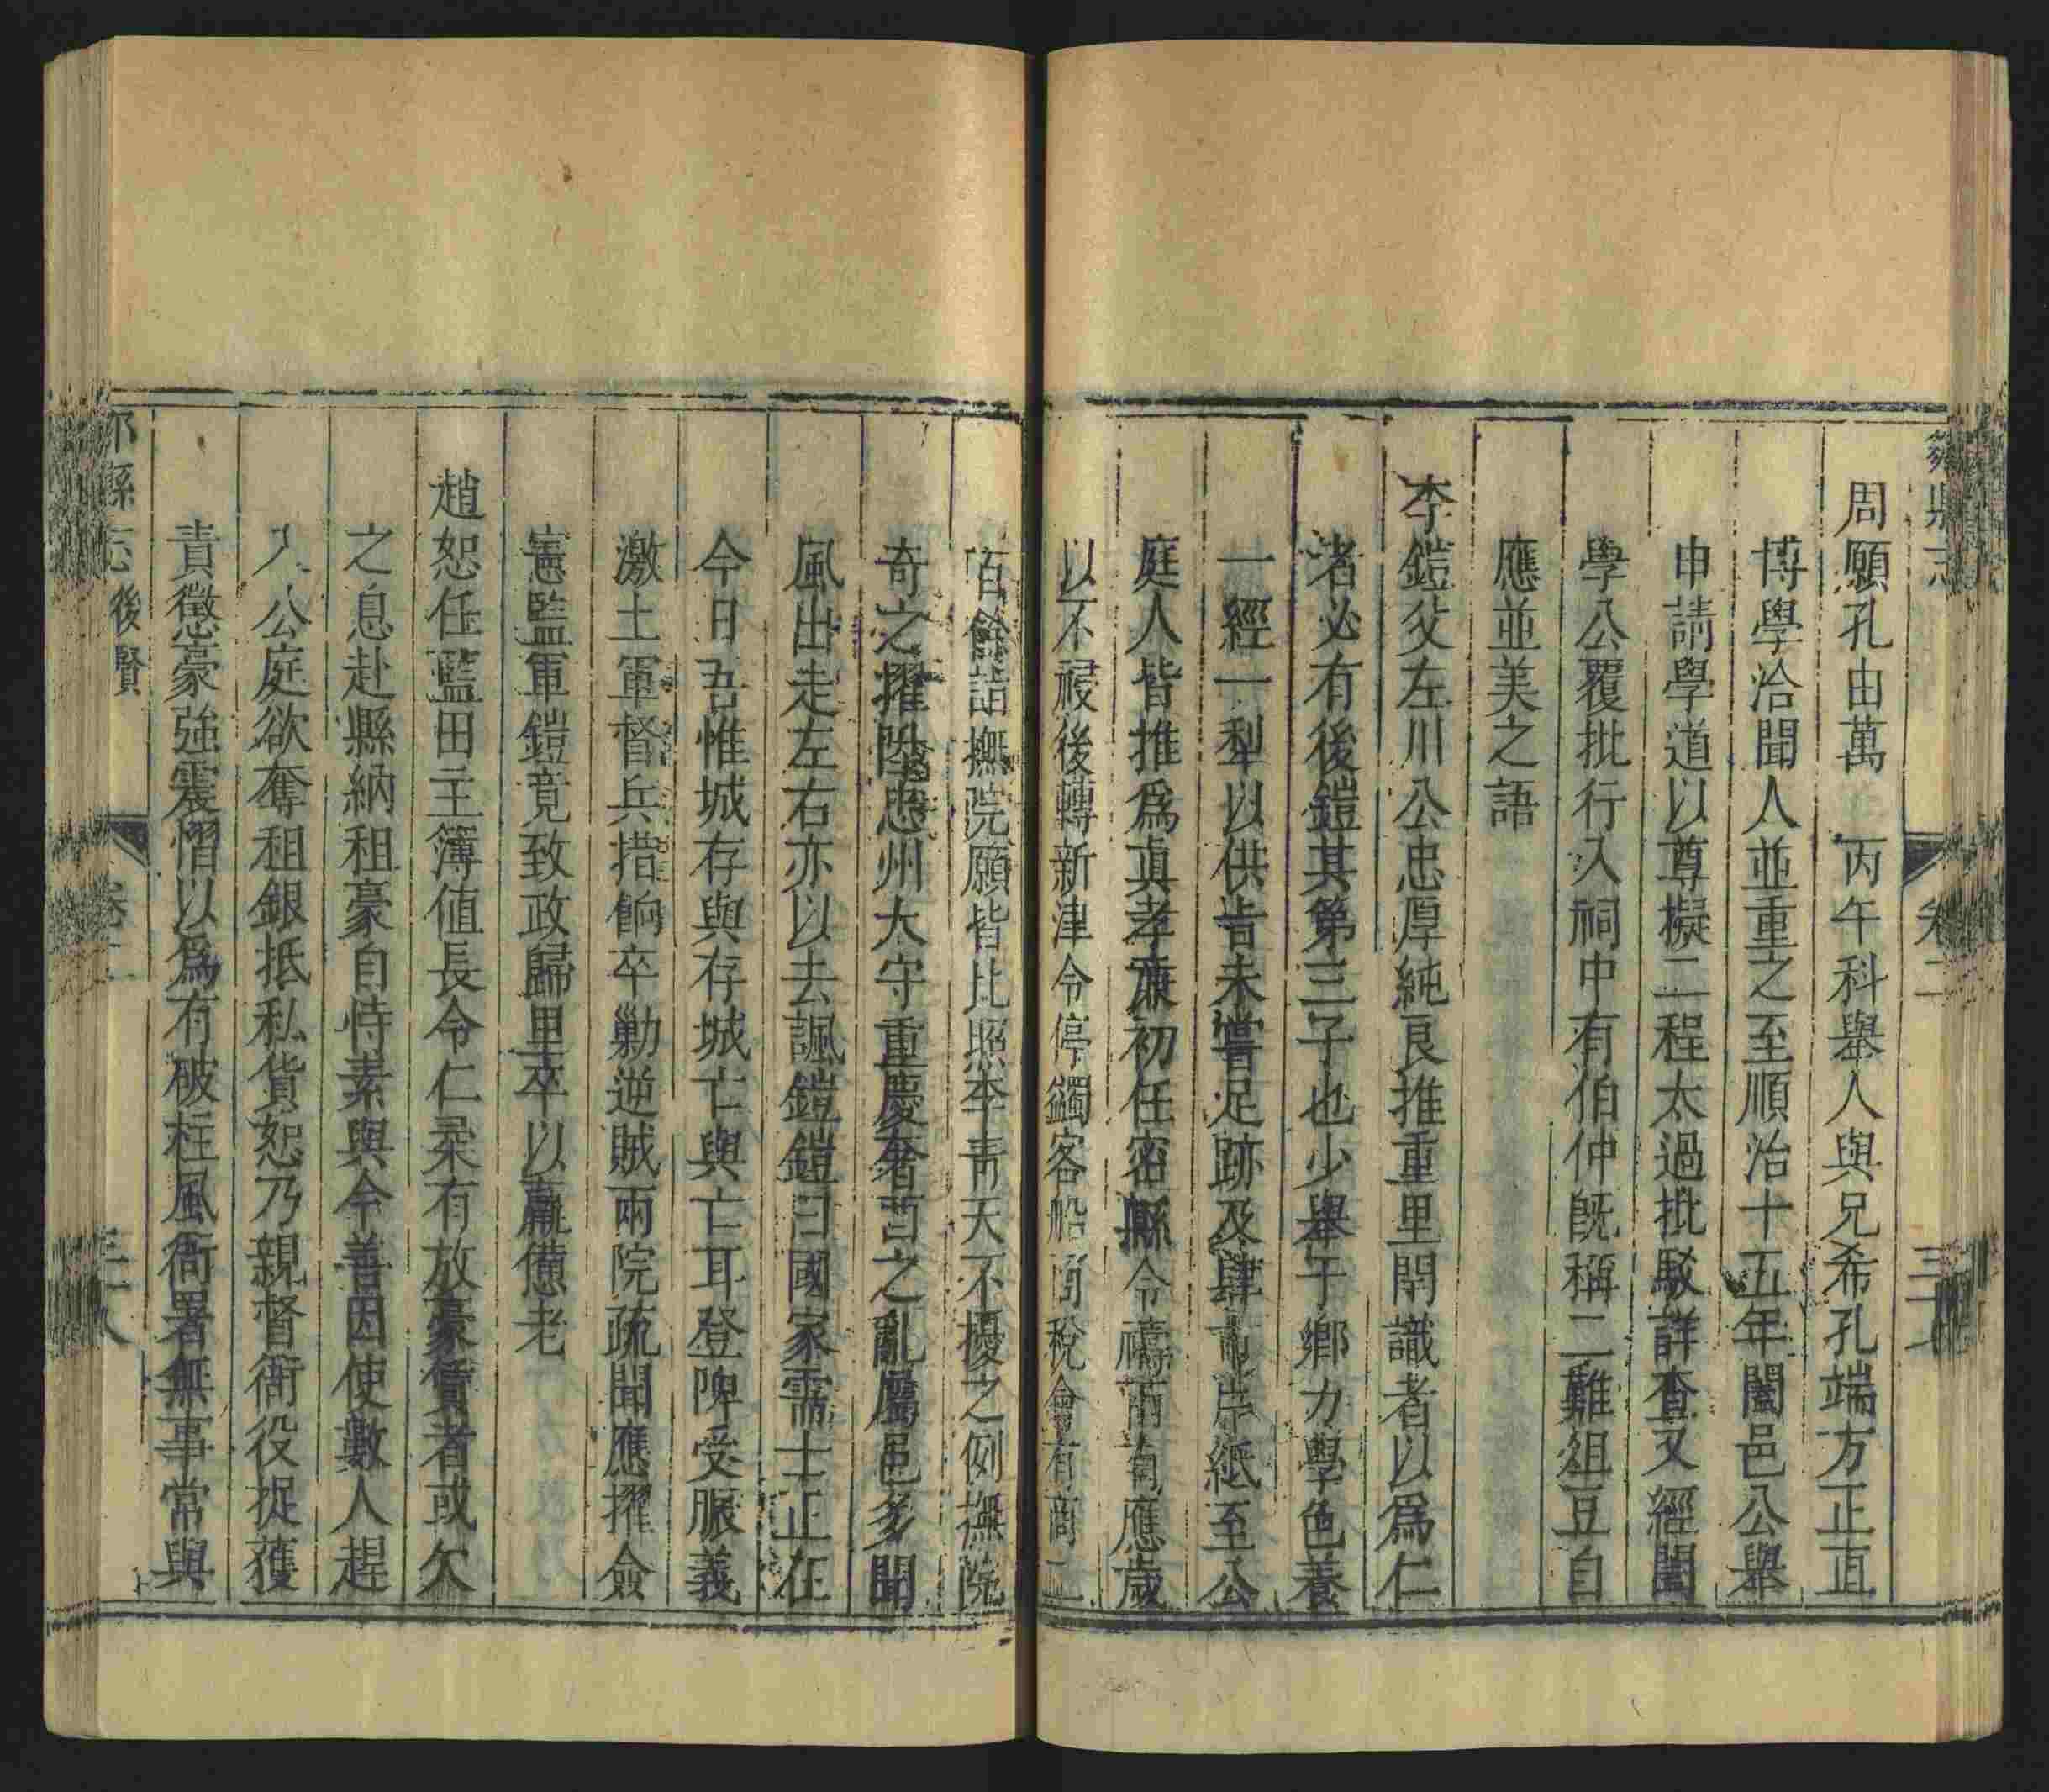 縣志 卷二
周願孔由萬 丙午科舉人與兄希孔端方正直
博學洽聞人並重之至順治十五年闔邑公舉
申請學道以尊擬二程太過批駁詳查又經闔
學公覆批行入祠中有伯仲旣稱二難俎豆自
應並美之語
李鎧父左川公忠厚純良推重里閈識者以爲仁
者必有後鎧其第三子也少舉于鄉力學色養
一經一犁以供吿未嘗足跡及肆市片紙至公
庭人皆推爲眞孝廉初任密縣令禱雨甸應歲
以不祲後轉新津令停蠲客船商稅會有商
百餘詰撫院願皆比照李青天不擾之例撫院
奇之擢陞忠州大守重慶奢酋之亂屬邑多聞
風出走左右亦以去諷鎧鎧曰國家需士正在
今日吾惟城存與存城亡與亡耳登陴受脤義
激土軍督兵措餉卒勦逆賊兩院疏聞應擢僉
憲監軍鎧竟致政歸里卒以羸憊老
趙恕任藍田主簿値長令仁柔有放豪債者或欠
之息赴縣納租豪自恃素與令善因使數人趕
入公庭欲奪租銀抵私貨恕乃親督衙役捉獲
責懲豪強震慴以爲有破柱風衙署無事常與
縣志 後賢 卷二